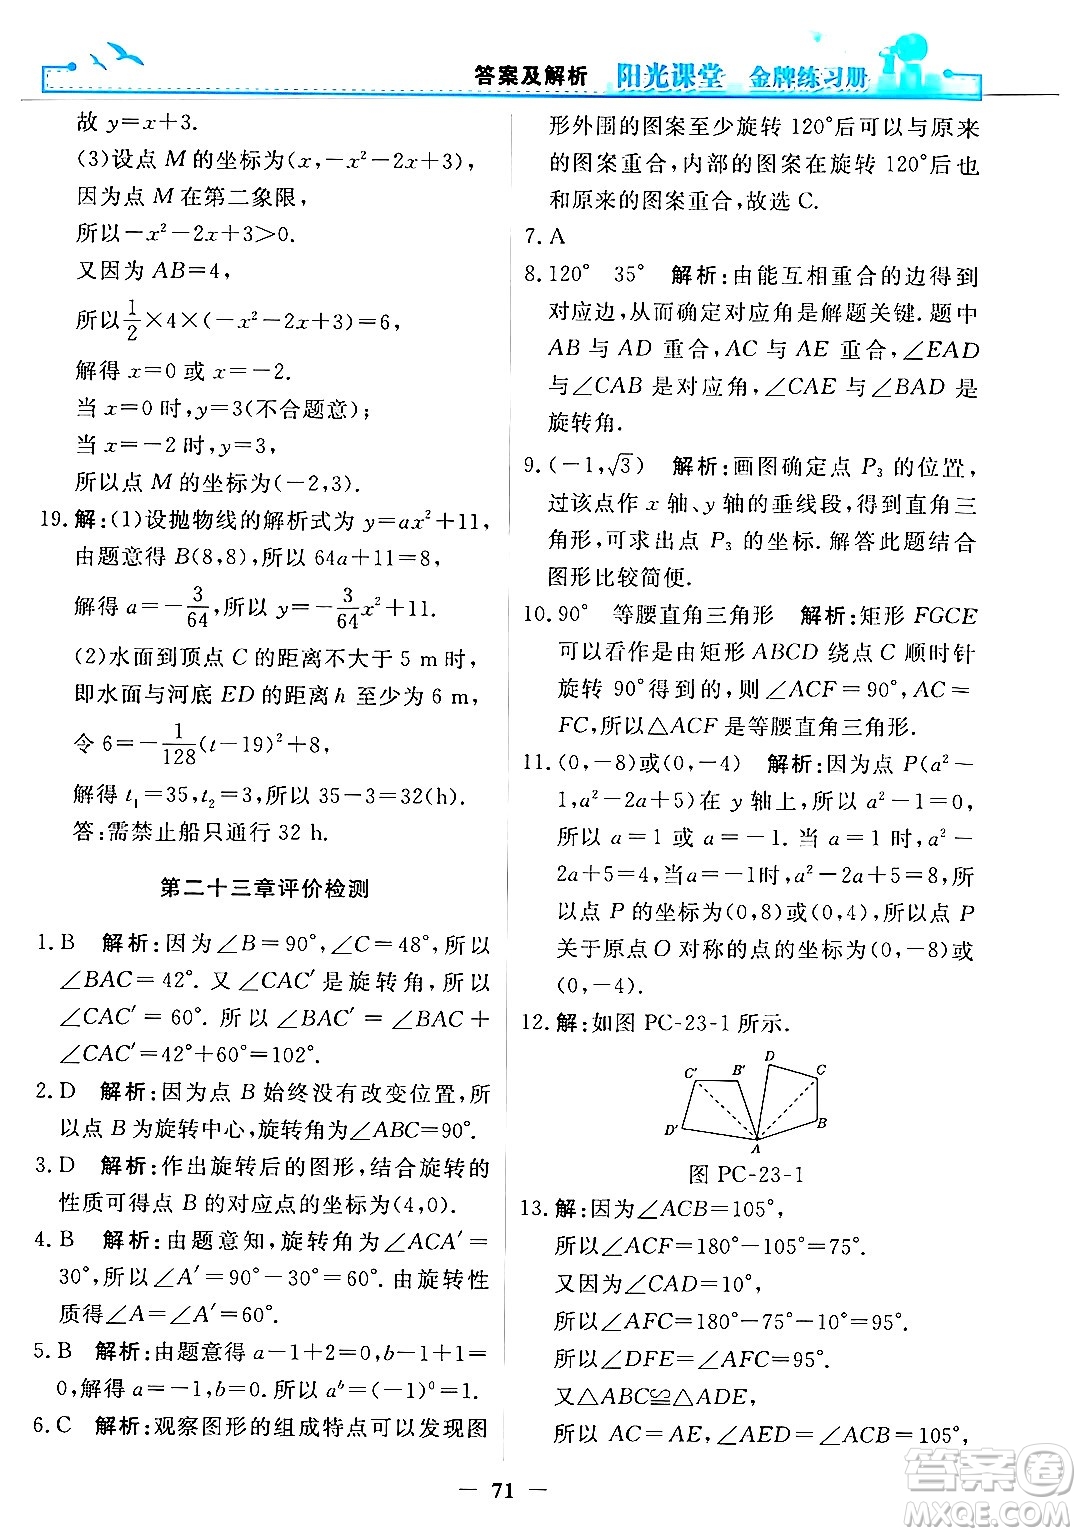 答案及解析 阳光课堂 金牌练习册
故 y=x+3.
(3)设点 M 的坐标为(x,-x²-2x+3),
因为点 M 在第二象限,
所以-x²-2x+3>0.
又因为 AB=4,
所以1/2×4×(-x²-2x+3)=6,
解得 x=0 或 x=-2.
当 x=0 时,y=3(不合题意);
当 x=-2 时,y=3,
所以点 M 的坐标为(-2,3).
19.解:(1)设抛物线的解析式为 y=ax²+11,
由题意得 B(8,8),所以 64a+11=8,
解得 a=-3/64,所以 y=-3/64x²+11.
(2)水面到顶点 C 的距离不大于 5 m时,
即水面与河底 ED 的距离 h 至少为 6 m,
令 6=-1/128(t-19)²+8,
解得 t₁=35,t₂=3,所以 35-3=32(h).
答:需禁止船只通行 32 h.
第二十三章评价检测
1.B 解析:因为∠B=90°,∠C=48°,所以
∠BAC=42°. 又∠CAC′是旋转角,所以
∠CAC′=60°. 所以∠BAC′=∠BAC+
∠CAC′=42°+60°=102°.
2.D 解析:因为点 B 始终没有改变位置,所
以点 B 为旋转中心,旋转角为∠ABC=90°.
3.D 解析:作出旋转后的图形,结合旋转的
性质可得点 B 的对应点的坐标为(4,0).
4.B 解析:由题意知,旋转角为∠ACA′=
30°,所以∠A′=90°-30°=60°.由旋转性
质得∠A=∠A′=60°.
5.B 解析:由题意得 a-1+2=0,b-1+1=
0,解得 a=-1,b=0.所以 aᵇ=(-1)⁰=1.
6.C 解析:观察图形的组成特点可以发现图
形外围的图案至少旋转 120°后可以与原来
的图案重合,内部的图案在旋转 120°后也
和原来的图案重合,故选 C.
7.A
8.120° 35° 解析:由能互相重合的边得到
对应边,从而确定对应角是解题关键.题中
AB 与 AD 重合,AC 与 AE 重合,∠EAD
与∠CAB 是对应角,∠CAE 与∠BAD 是
旋转角.
9.(-1,√3) 解析:画图确定点 P₃ 的位置,
过该点作 x 轴、y 轴的垂线段,得到直角三
角形,可求出点 P₃ 的坐标.解答此题结合
图形比较简便.
10.90° 等腰直角三角形 解析:矩形 FGCE
可以看作是由矩形 ABCD 绕点 C 顺时针
旋转 90°得到的,则∠ACF=90°,AC=
FC,所以△ACF 是等腰直角三角形.
11.(0,-8)或(0,-4) 解析:因为点 P(a²-
1,a²-2a+5)在 y 轴上,所以 a²-1=0,
所以 a=1 或 a=-1. 当 a=1 时,a²-
2a+5=4,当 a=-1 时,a²-2a+5=8,所
以点 P 的坐标为(0,8)或(0,4),所以点 P
关于原点 O 对称的点的坐标为(0,-8)或
(0,-4).
12.解:如图 PC-23-1 所示.
D
C′ B′ C
D′ B
A
图 PC-23-1
13.解:因为∠ACB=105°,
所以∠ACF=180°-105°=75°.
又因为∠CAD=10°,
所以∠AFC=180°-75°-10°=95°.
所以∠DFE=∠AFC=95°.
又△ABC≌△ADE,
所以 AC=AE,∠AED=∠ACB=105°,
— 71 —
答案圈
MXQE.COM